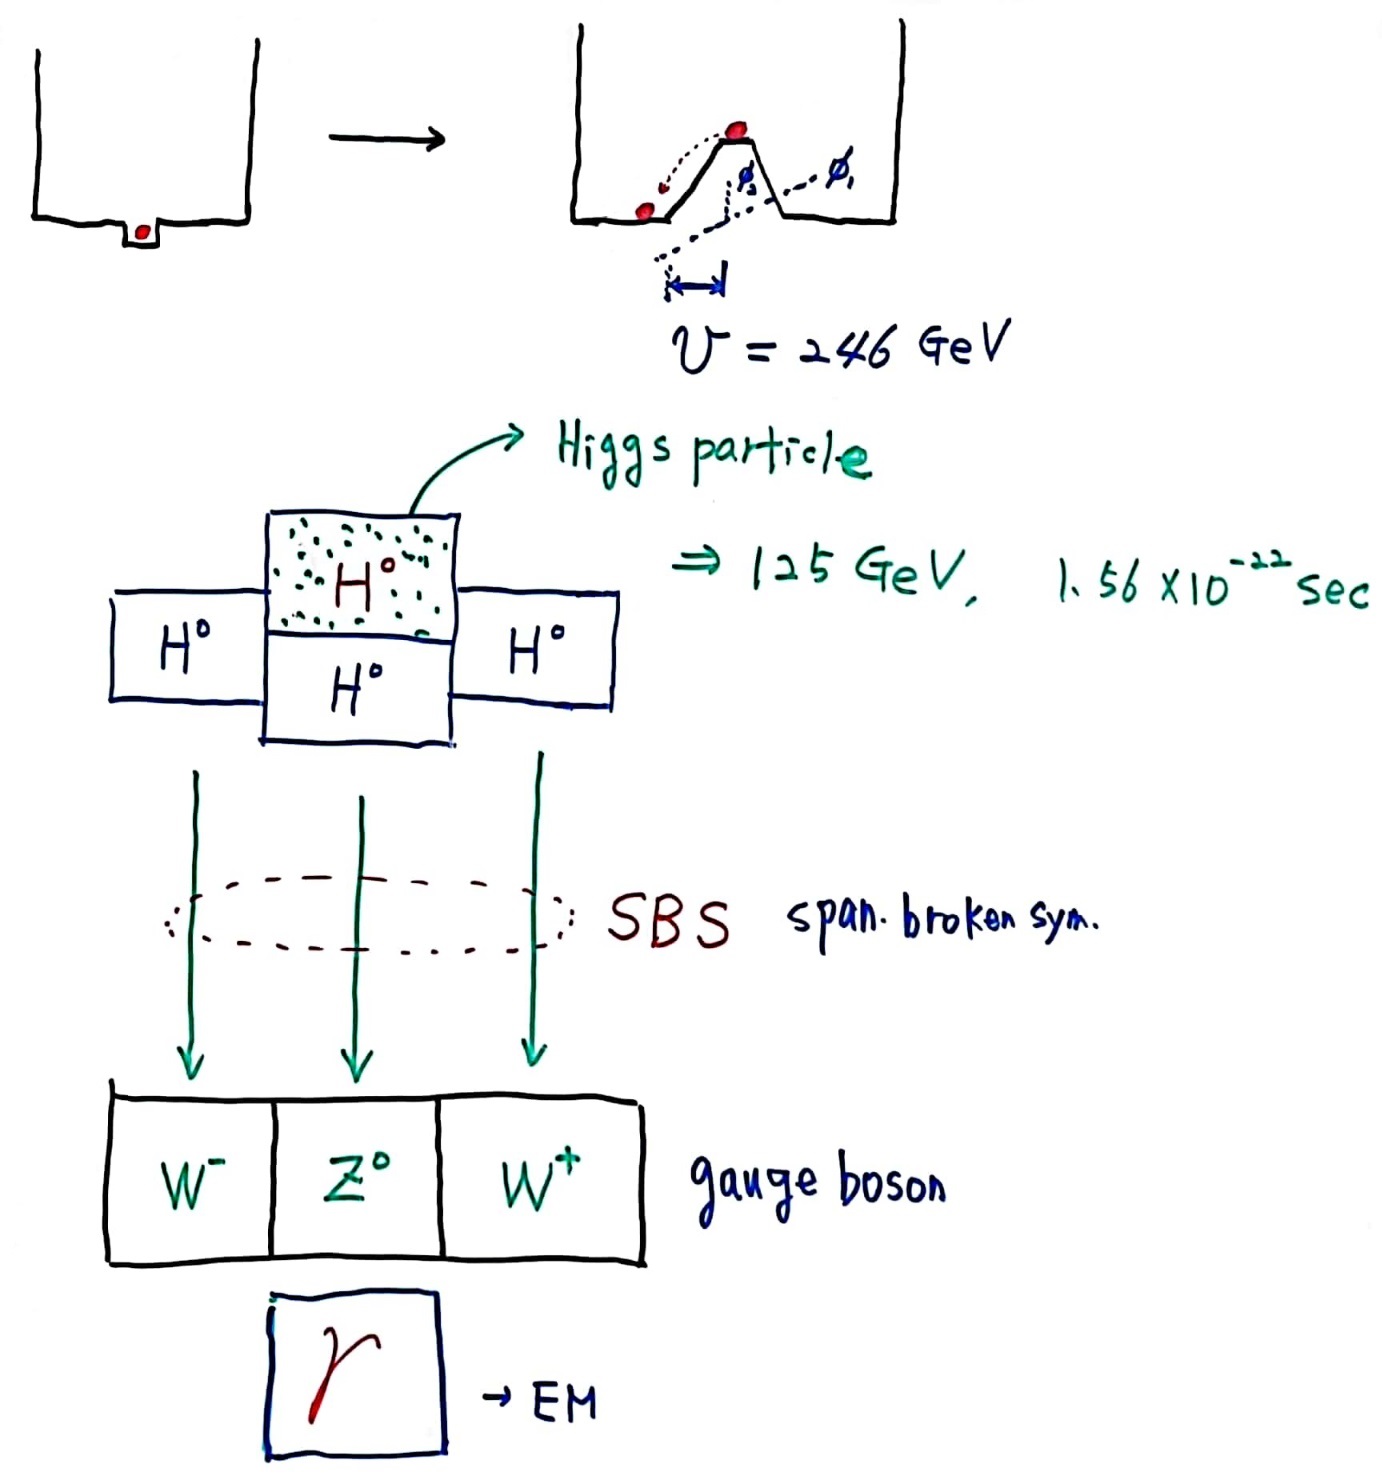 ϕ₂ ϕ₁
v = 246 GeV
Higgs particle
⇒ 125 GeV, 1.56 × 10⁻²² sec
H⁰
H⁰ H⁰ H⁰
SBS span. broken sym.
W⁻ Z⁰ W⁺ gauge boson
γ → EM